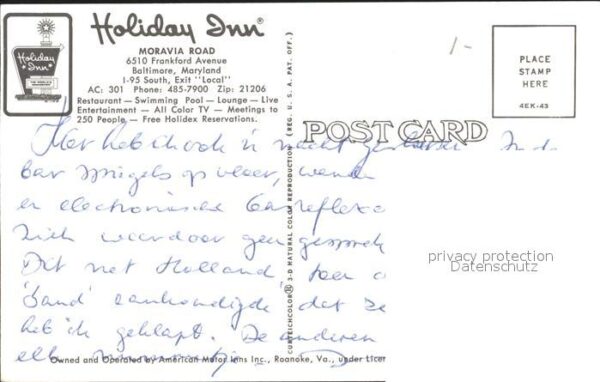 Holiday Inn®
Holiday
Inn
MORAVIA ROAD
6510 Frankford Avenue
Baltimore, Maryland
I-95 South, Exit "Local"
AC: 301 Phone: 485-7900 Zip: 21206
Restaurant — Swimming Pool — Lounge — Live
Entertainment — All Color TV — Meetings to
250 People — Free Holidex Reservations.
1-
PLACE
STAMP
HERE
4EK-43
POST CARD
CURTEICHCOLOR® 3-D NATURAL COLOR REPRODUCTION (REG. U.S.A. PAT. OFF.)
Hier heb ik ook 1 nacht geslapen
bar spiegels op vloer,
en electronische
zich waardoor geen gesprek
Dit net Holland, toen
'band' aankondigde dat ze
heb ik geklapt. De anderen
privacy protection
Datenschutz
Owned and Operated by American Motor Inns Inc., Roanoke, Va., under Licen